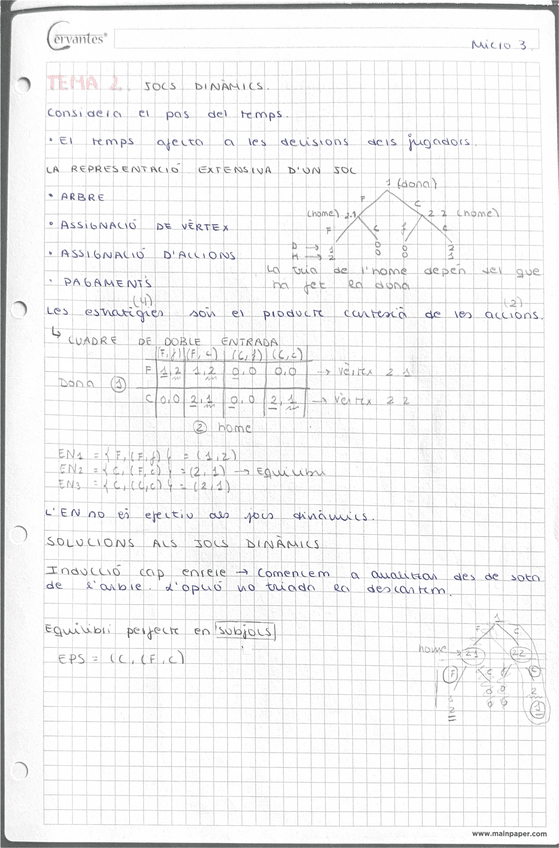 Cervantes®
Micro 3.
TEMA 2. JOCS DINÀMICS.
Considera el pas del temps.
• El temps afecta a les decisions dels jugadors.
LA REPRESENTACIÓ EXTENSIVA D'UN JOC
1 (dona)
• ARBRE
F C
(home) 2.1 2.2 (home)
• ASSIGNACIÓ DE VÈRTEX
F C f c
D → 1 0 0 2
H → 2 0 0 1
• ASSIGNACIÓ D'ACCIONS
La tria de l'home depèn del que
• PAGAMENTS
ha fet la dona
(4) (2)
Les estratègies són el producte cartesià de les accions.
↳ CUADRE DE DOBLE ENTRADA
(F, f) (F, c) (C, f) (C, c)
F 1,2 1,2 0,0 0,0 → vèrtex 2.1
Dona ①
C 0,0 2,1 0,0 2,1 → vèrtex 2.2
② home
EN1 = { F, (F, f) } = (1,2)
EN2 = { C, (F, c) } = (2,1) → Equilibri
EN3 = { C, (C, c) } = (2,1)
L'EN no és efectiu als jocs dinàmics.
SOLUCIONS ALS JOCS DINÀMICS
Inducció cap enrere → Comencem a analitzar des de sota
de l'arbre. L'opció no triada la descartem.
Equilibri perfecte en subjocs
EPS = (C, (F, c)
1
F C
home → 2.1 2.2
F C f c
1 0 0 2
2 0 0 1
www.mainpaper.com